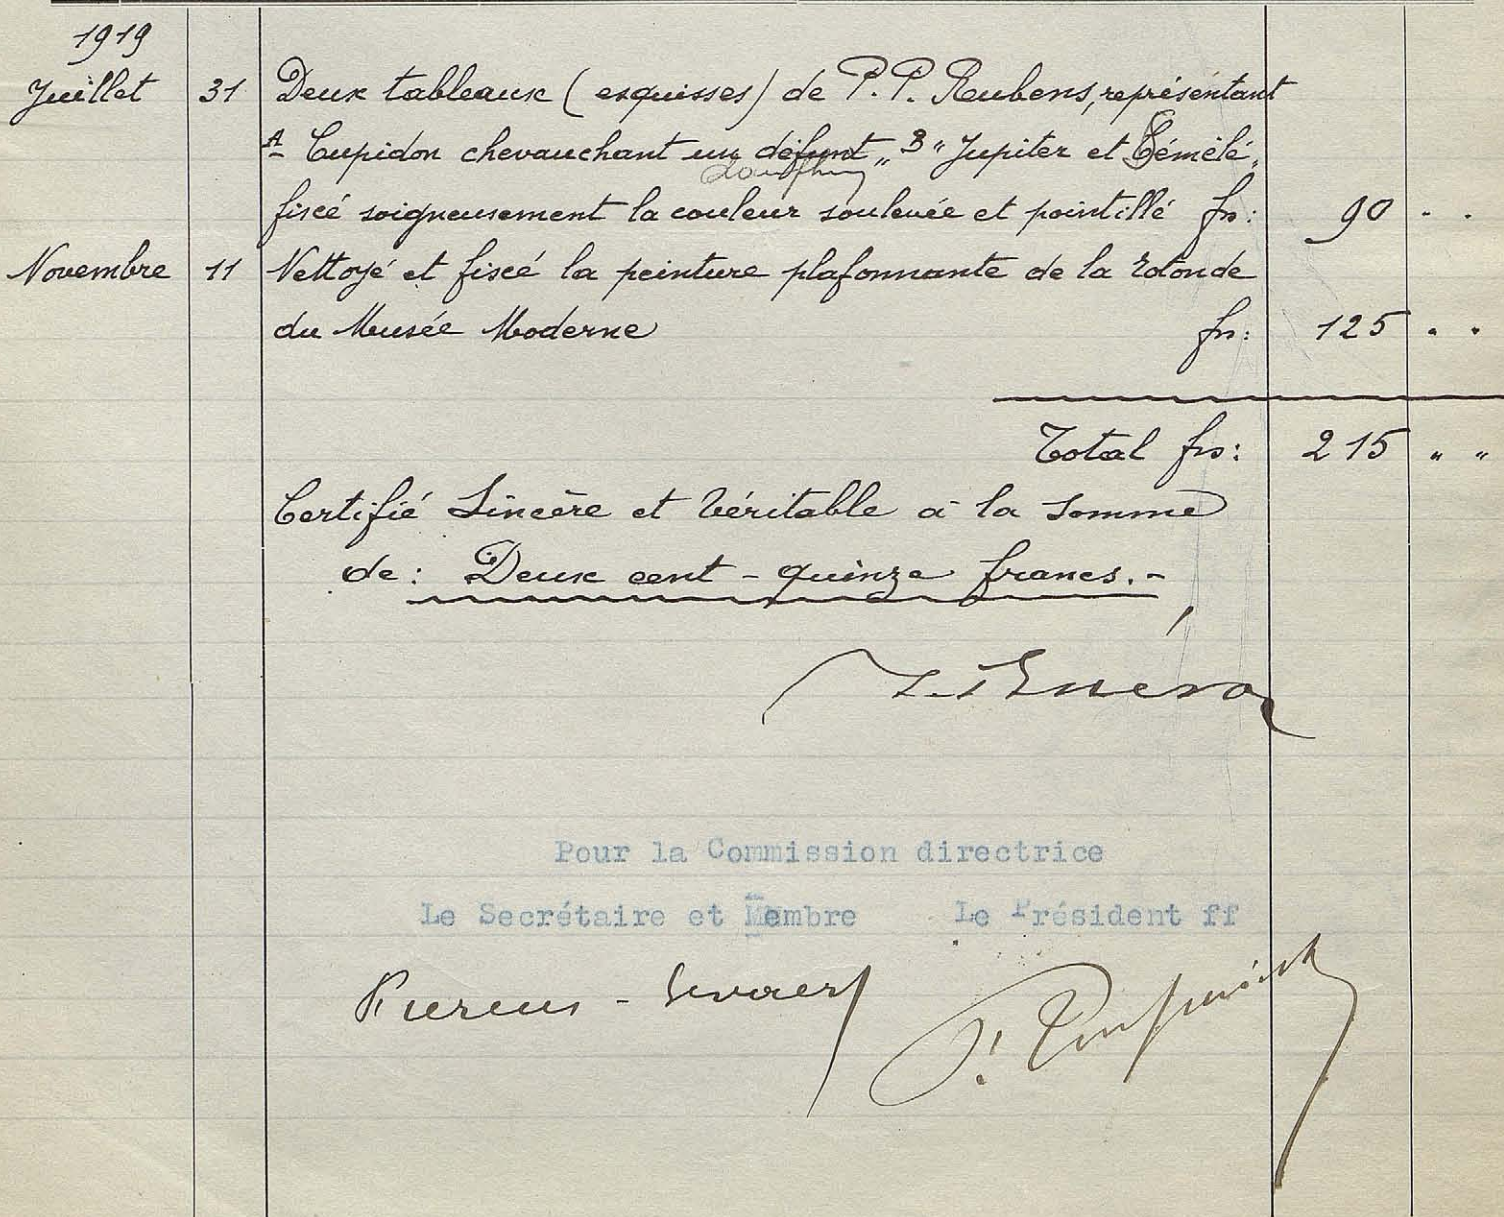 1919
Juillet 31 Deux tableaux (esquisses) de P. P. Rubens, représentant
A Cupidon chevauchant un défunt „ B " Jupiter et Sémélé „
dauphin
fixé soigneusement la couleur soulevée et pointillé frs: 90 " "
Novembre 11 Nettoyé et fixé la peinture plafonnante de la Rotonde
du Musée Moderne frs: 125 " "
Total frs: 215 " "
Certifié Sincère et Véritable à la Somme
de: Deux cent - quinze francs.-
Pour la Commission directrice
Le Secrétaire et Membre Le Président ff
Fierens - Gevaert